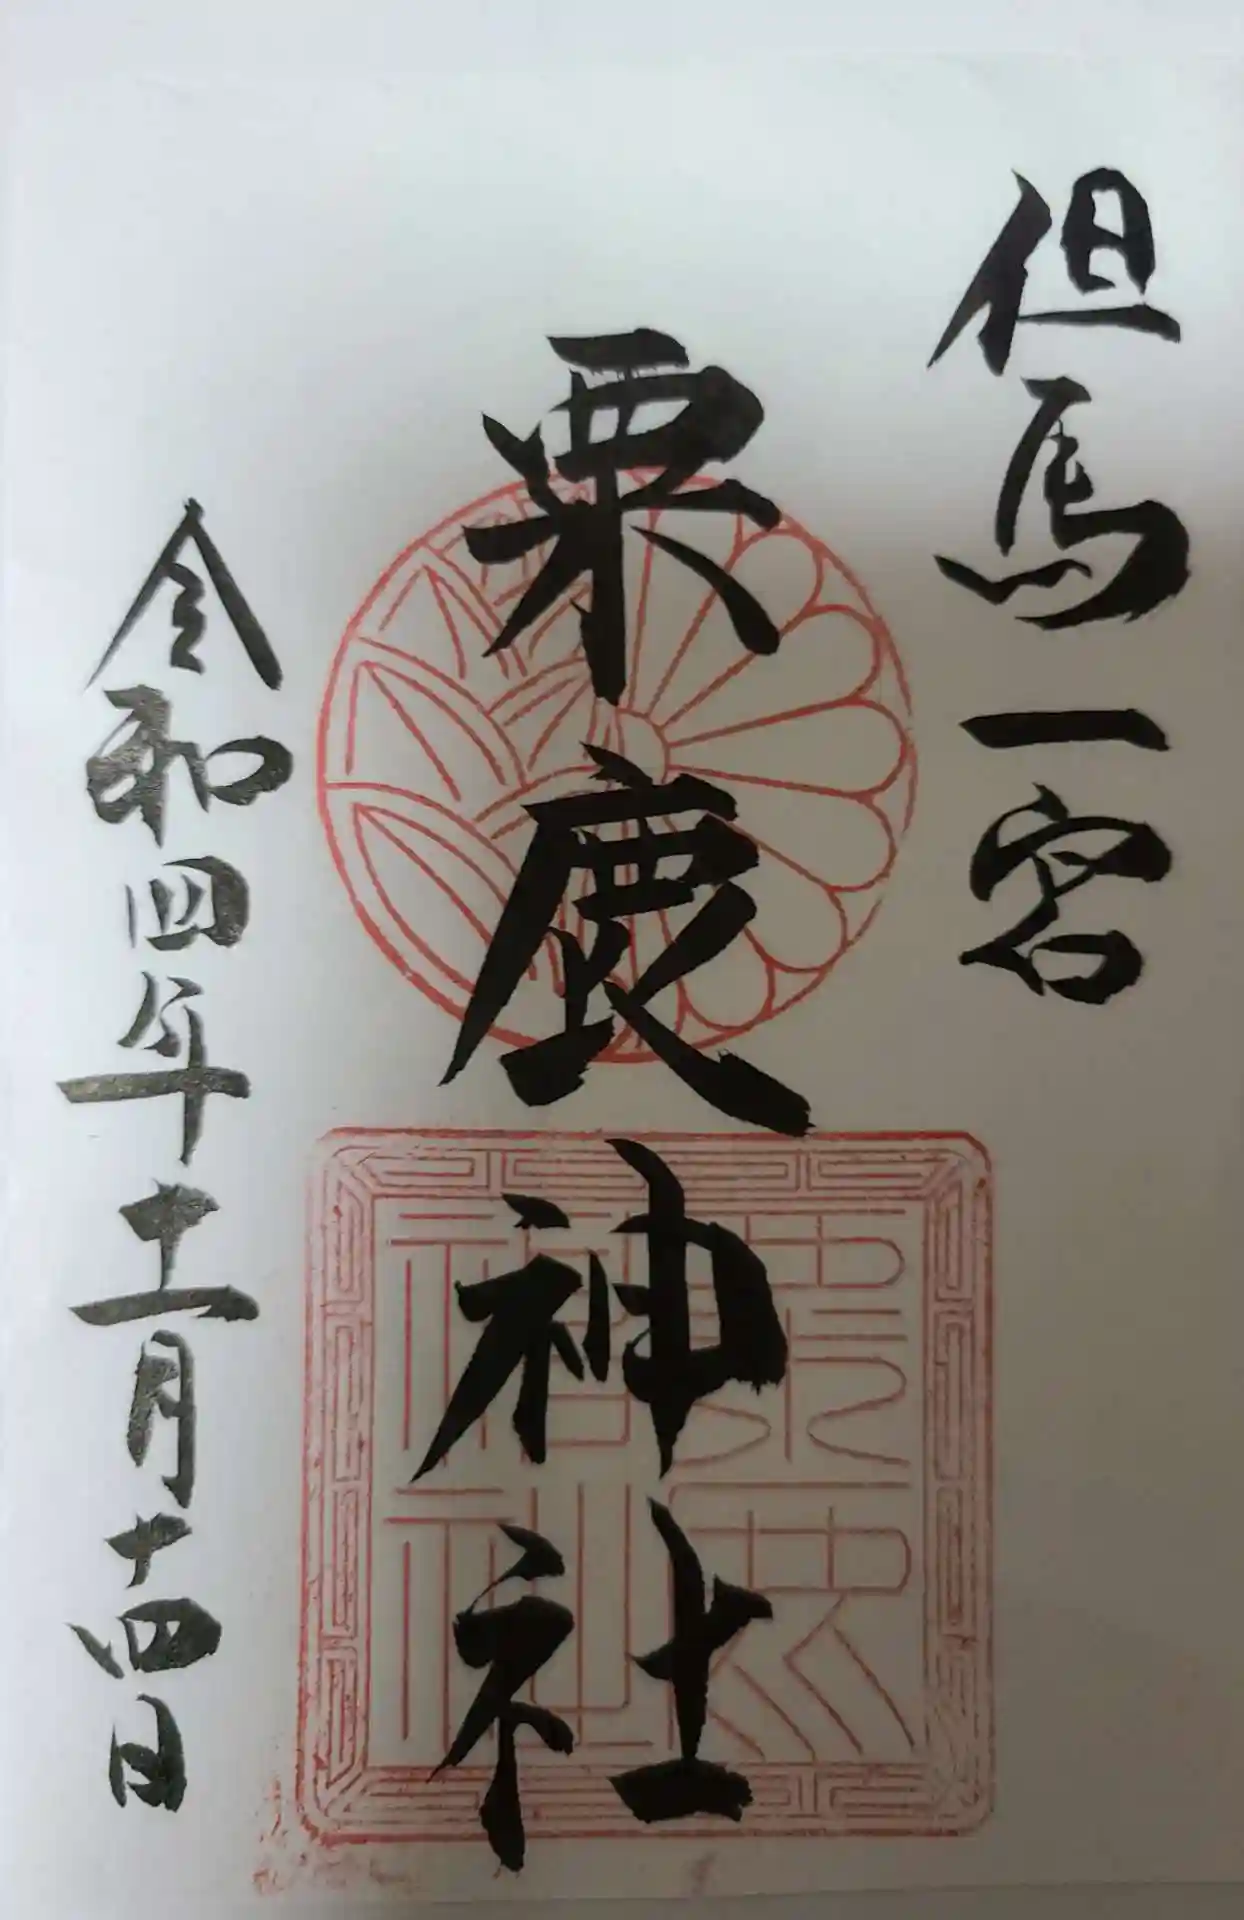 但馬一宮
粟鹿神社
令和四年十一月十四日
粟鹿
神社